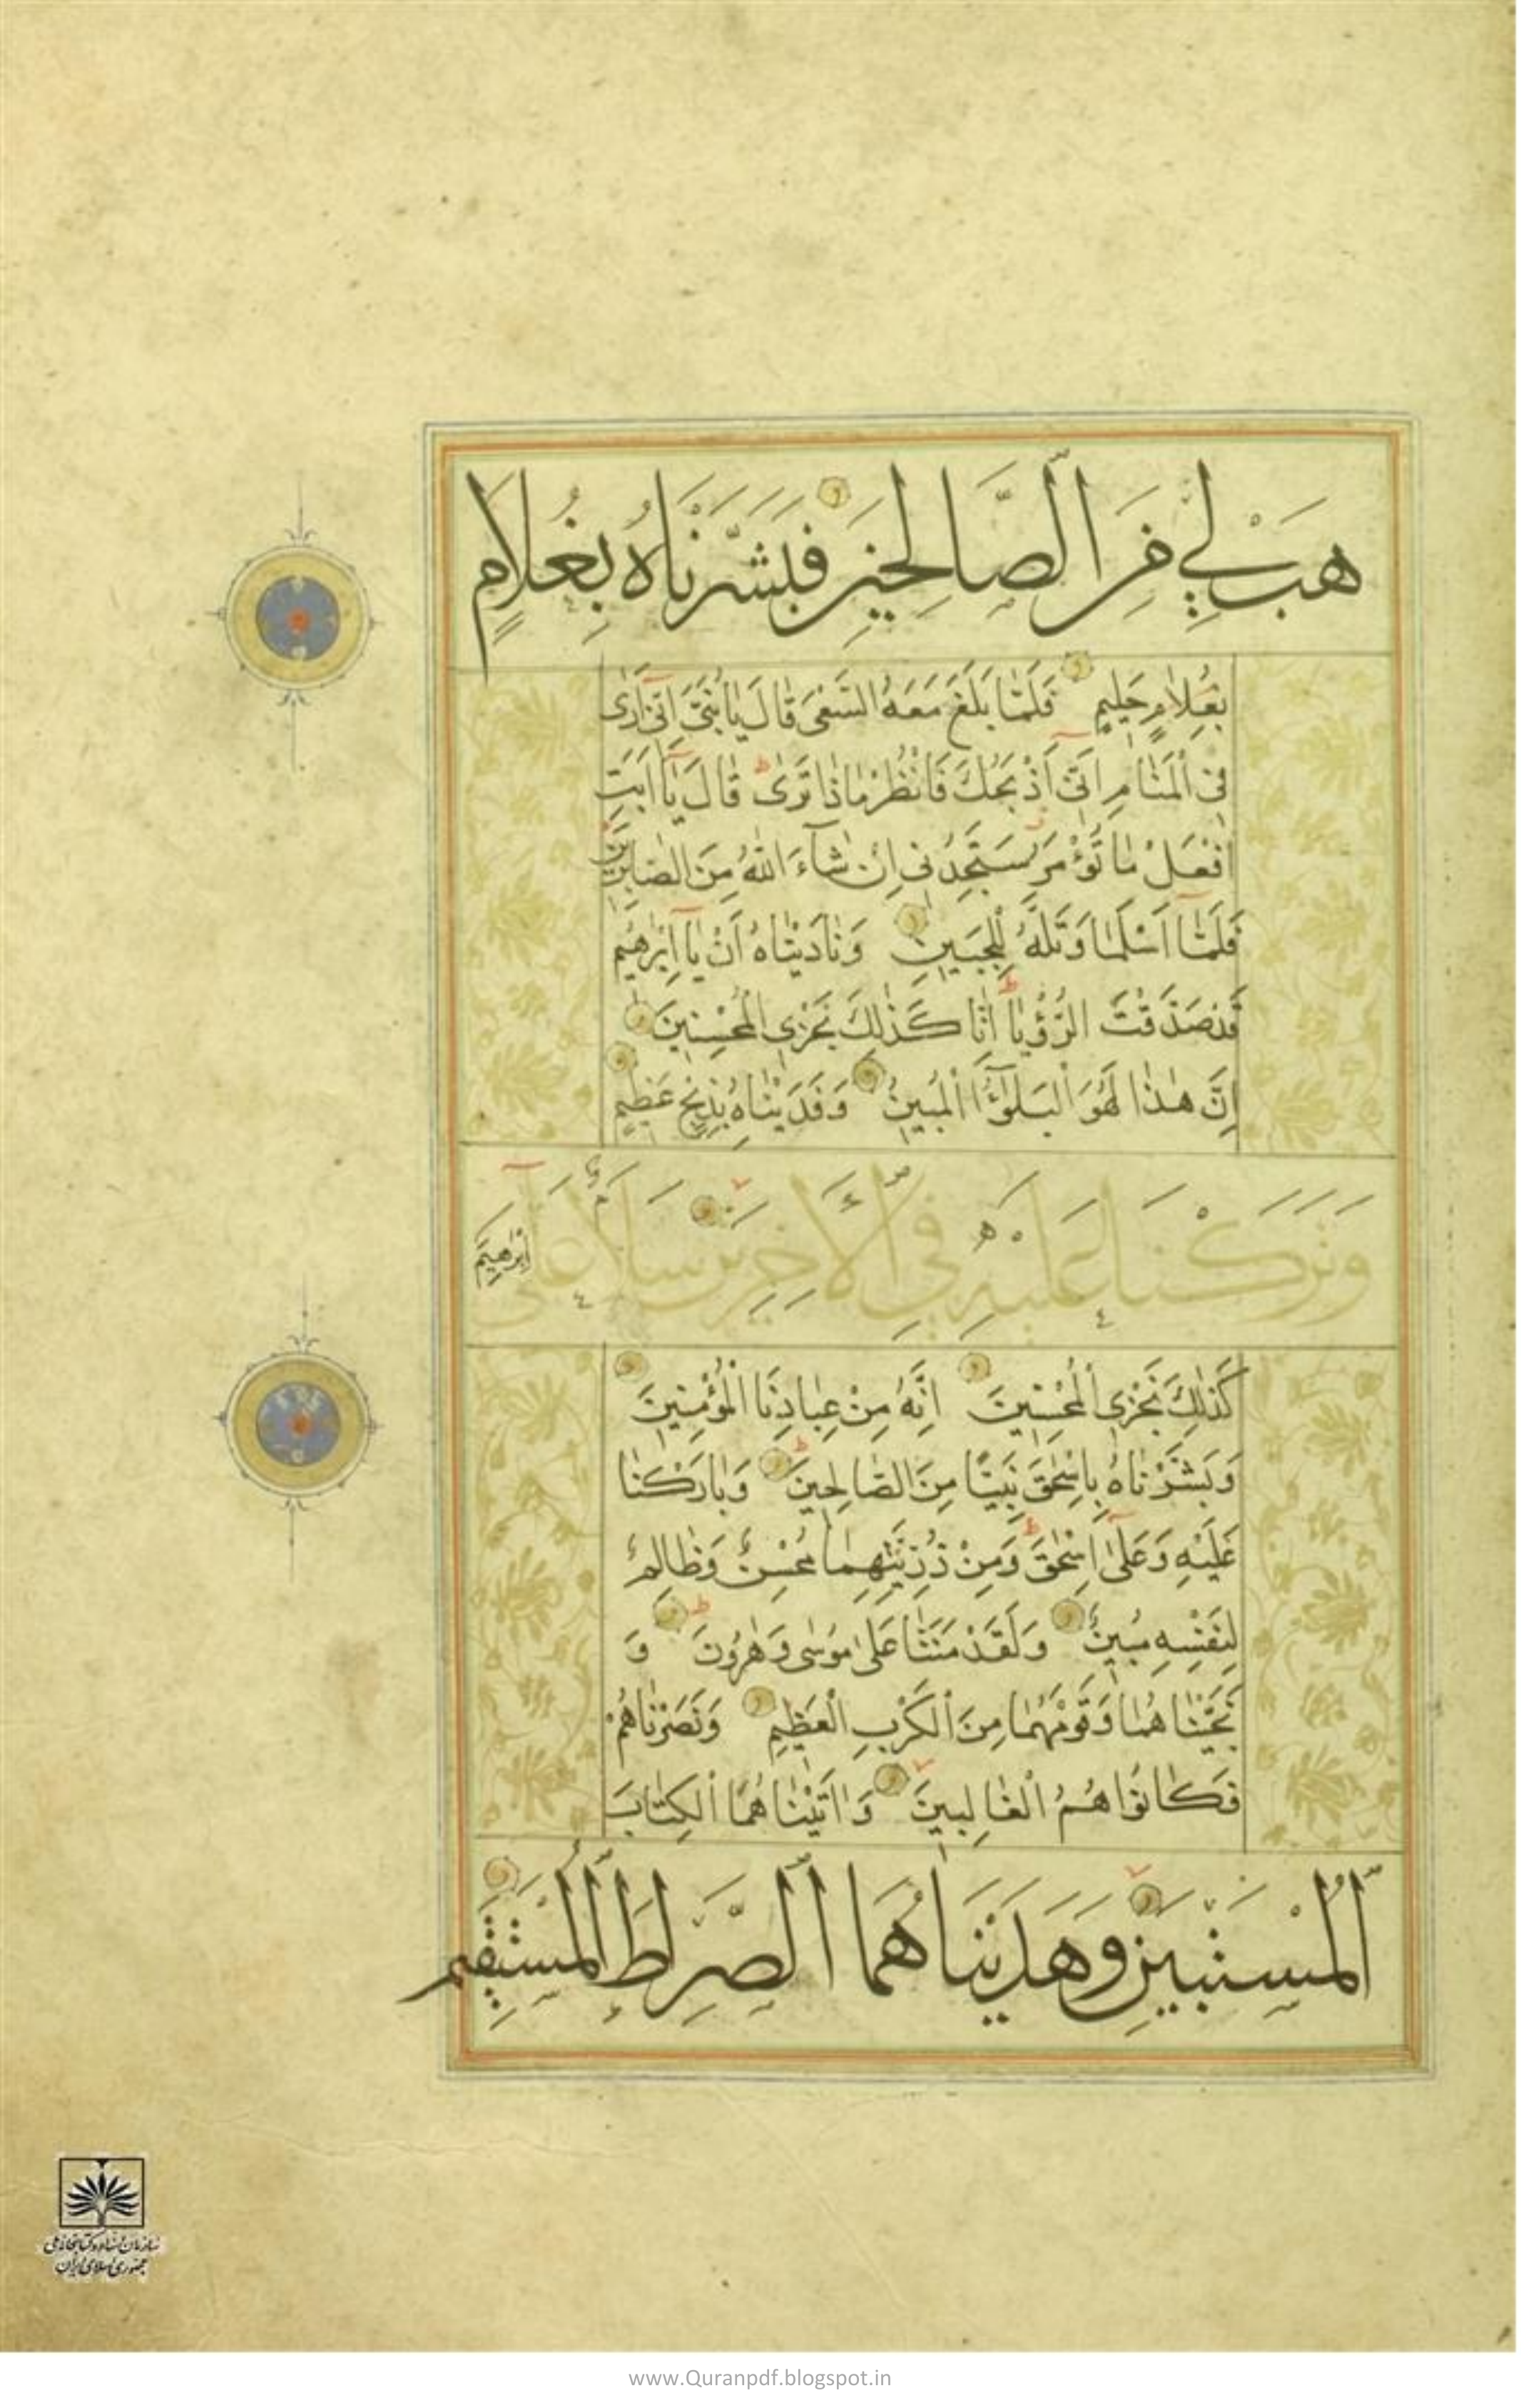 هَبْ لِي مِنَ الصَّالِحِينَ فَبَشَّرْنَاهُ بِغُلَامٍ
بِغُلَامٍ حَلِيمٍ فَلَمَّا بَلَغَ مَعَهُ السَّعْيَ قَالَ يَا بُنَيَّ اِنِّي اَرٰى
فِي الْمَنَامِ اَنِّي اَذْبَحُكَ فَانْظُرْ مَاذَا تَرٰى قَالَ يَا اَبَتِ
افْعَلْ مَا تُؤْمَرُ سَتَجِدُنِي اِنْ شَآءَ اللّٰهُ مِنَ الصَّابِرِينَ
فَلَمَّا اَسْلَمَا وَتَلَّهُ لِلْجَبِينِ وَنَادَيْنَاهُ اَنْ يَا اِبْرٰهِيمُ
قَدْ صَدَّقْتَ الرُّؤْيَا اِنَّا كَذٰلِكَ نَجْزِي الْمُحْسِنِينَ
اِنَّ هٰذَا لَهُوَ الْبَلٰٓؤُا الْمُبِينُ وَفَدَيْنَاهُ بِذِبْحٍ عَظِيمٍ
وَتَرَكْنَا عَلَيْهِ فِي الْاٰخِرِينَ سَلَامٌ عَلٰى اِبْرٰهِيمَ
كَذٰلِكَ نَجْزِي الْمُحْسِنِينَ اِنَّهُ مِنْ عِبَادِنَا الْمُؤْمِنِينَ
وَبَشَّرْنَاهُ بِاِسْحٰقَ نَبِيًّا مِنَ الصَّالِحِينَ وَبَارَكْنَا
عَلَيْهِ وَعَلٰى اِسْحٰقَ وَمِنْ ذُرِّيَّتِهِمَا مُحْسِنٌ وَظَالِمٌ
لِنَفْسِهِ مُبِينٌ وَلَقَدْ مَنَنَّا عَلٰى مُوسٰى وَهٰرُونَ وَ
نَجَّيْنَاهُمَا وَقَوْمَهُمَا مِنَ الْكَرْبِ الْعَظِيمِ وَنَصَرْنَاهُمْ
فَكَانُوا هُمُ الْغَالِبِينَ وَاٰتَيْنَاهُمَا الْكِتَابَ
الْمُسْتَبِينَ وَهَدَيْنَاهُمَا الصِّرَاطَ الْمُسْتَقِيمَ
سازمان اسناد و کتابخانه ملی
جمهوری اسلامی ایران
www.Quranpdf.blogspot.in